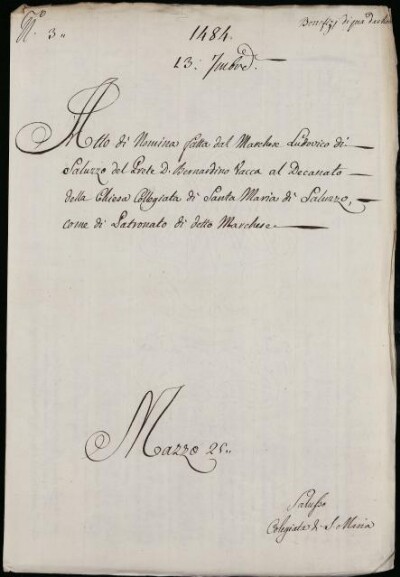 N.º 3.,
1484.
13: 7mbre.
Atto di Nomina fatta dal Marchese Ludovico di
Saluzzo del Prete D. Bernardino Vacca al Decanato
della Chiesa Collegiata di Santa Maria di Saluzzo,
come di Patronato di detto Marchese
Mazzo 2.,
Saluzzo
Colegiata di S. Maria